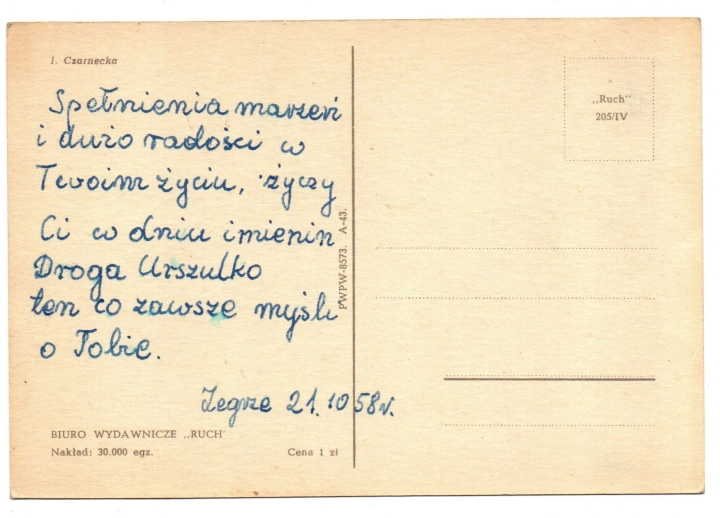 I. Czarnecka
Spełnienia marzeń
i dużo radości w
Twoim życiu, życzy
Ci w dniu imienin
Droga Urszulko
ten co zawsze myśli
o Tobie.
Zegrze 21.10 58r.
BIURO WYDAWNICZE „RUCH"
Nakład: 30.000 egz.
Cena 1 zł
PWPW-8573. A-43.
„Ruch"
205/IV